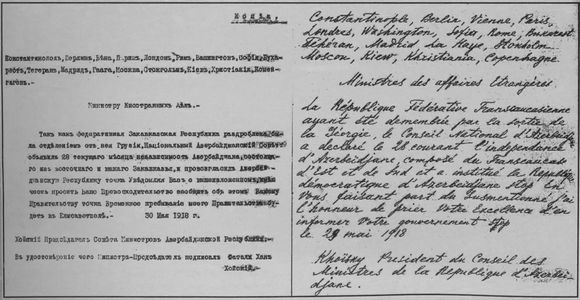 Копія.
Константинополь, Берлинъ, Вѣна, Парижъ, Лондонъ, Римъ, Вашингтонъ, Софія, Буха-
рестъ, Тегеранъ, Мадридъ, Гаага, Москва, Стокгольмъ, Кіевъ, Христіанія, Копен-
гагенъ.
Министру Иностранныхъ Дѣлъ.-
Такъ какъ Федеративная Закавказская Республика раздроблена была
отдѣленіемъ отъ нея Грузіи, Національный Азербайджанскій Совѣтъ
объявилъ 28 текущаго мѣсяца независимость Азербайджана, состоящаго
изъ восточнаго и
Закавказья, и провозгласилъ Азербейд-
жанскую Республику точка Увѣдомляя Васъ о вышеизложенномъ, имѣю
честь просить Ваше Превосходительство сообщить объ этомъ Вашему
Правительству точка Временное пребываніе моего Правительства бу-
детъ въ Елисаветполѣ. 30 Мая 1918 г.
Хойскій Предсѣдатель Совѣта Министровъ Азербейджанской Республики.
Въ удостовѣреніе чего Министръ-Предсѣдатель подписалъ Фатали Ханъ
Хойскій.
Constantinople, Berlin, Vienne, Paris,
Londres, Washington, Sofia, Rome, Bucarest
Téhéran, Madrid La Haye, Stokholm
Moscou, Kiew, Khristiania, Copenhague
Ministres des affaires Etrangères.
La République Fédérative Transcaucasienne
ayant été démembrée par la sortie de
la Géorgie, le Conseil National d'Azerbeidjane
a déclaré le 28 courant l'indépendance
d'Azerbeidjane, composée du Transcaucase
d'Est et de Sud et a institué la République
démocratique d'Azerbeidjane Stop En
Vous faisant part du susmentionné j'ai
l'honneur de prier Votre Excellence d'en
informer Votre gouvernement Stop
le mai 1918
Khoïsky President du Conseil des
Ministres de la République d'Azerbei-
djane.